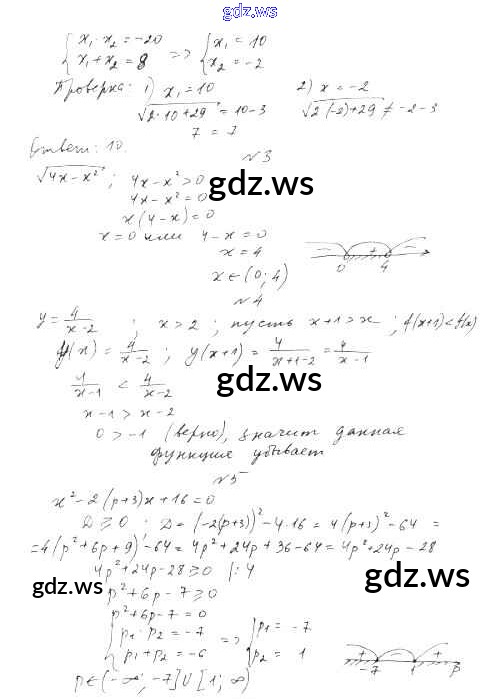 gdz.ws
{x₁·x₂ = -20 => {x₁ = 10
{x₁+x₂ = 8 {x₂ = -2
Проверка: 1) x₁ = 10 2) x = -2
√(2·10+29) = 10-3 √(2·(-2)+29) ≠ -2-3
7 = 7
Ответ: 10.
№3
√(4x-x²) ; 4x-x²>0
4x-x²=0
gdz.ws
x(4-x)=0
x=0 или 4-x=0
x=4
- + -
0 4
x∈(0;4)
№4
y = 4/(x-2) ; x>2 ; пусть x+1>x ; f(x+1)<f(x)
y(x) = 4/(x-2) ; y(x+1) = 4/(x+1-2) = 4/(x-1)
4/(x-1) < 4/(x-2)
gdz.ws
x-1 > x-2
0 > -1 (верно), значит данная
функция убывает
№5
x²-2(p+3)x+16=0
D≥0 ; D=(-2(p+3))²-4·16 = 4(p+3)²-64 =
=4(p²+6p+9)-64 = 4p²+24p+36-64 = 4p²+24p-28
4p²+24p-28≥0 |:4
gdz.ws
p²+6p-7≥0
p²+6p-7=0
{p₁·p₂ = -7 => {p₁ = -7
{p₁+p₂ = -6 {p₂ = 1
+ - +
-7 1 p
p∈(-∞; -7]∪[1; ∞)
gdz.ws